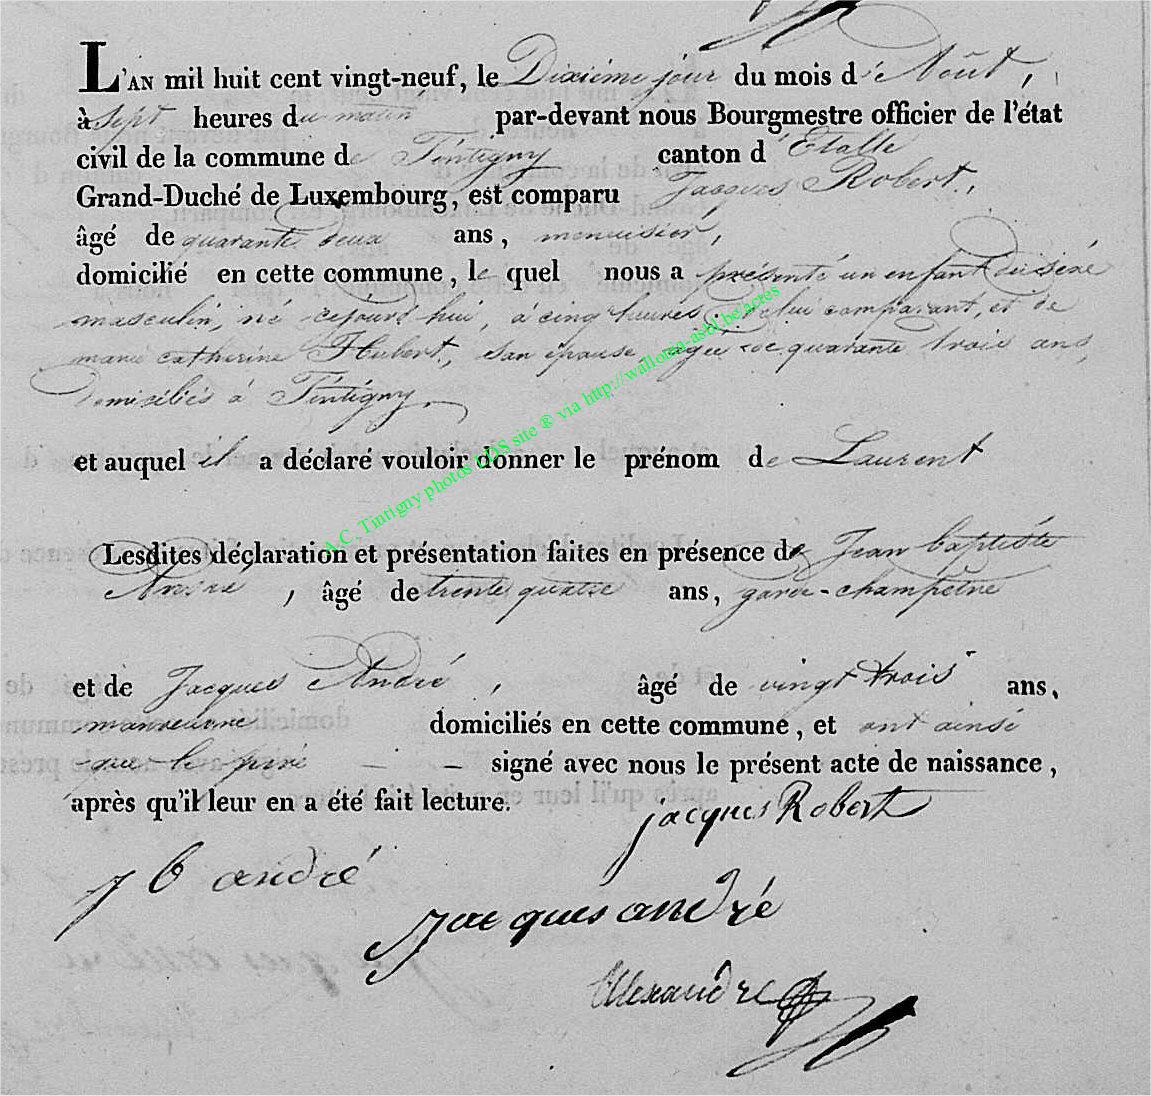 L'AN mil huit cent vingt-neuf, le Dixième jour du mois d'Août,
à sept heures du matin par-devant nous Bourgmestre officier de l'état
civil de la commune de Tintigny canton d'Etalle
Grand-Duché de Luxembourg, est comparu Jacques Robert,
âgé de quarante deux ans, menuisier,
domicilié en cette commune, le quel nous a présenté un enfant du sexe
masculin, né cejourd'hui, à cinq heures, de lui comparant, et de
marie catherine Hubert, son épouse, agée de quarante trois ans
Domiciliés à Tintigny
et auquel il a déclaré vouloir donner le prénom de Laurent
Lesdites déclaration et présentation faites en présence de Jean baptiste
André, âgé de trente quatre ans, garde-champêtre
et de Jacques André, âgé de vingt trois ans,
manoeuvre domiciliés en cette commune, et ont ainsi
que le père - - signé avec nous le présent acte de naissance,
après qu'il leur en a été fait lecture.
jacques Robert
J b andré
Jacques andré
Alexandre
A.C. Tintigny photos LDS site ® via http://wallonia-asbl.be/acres